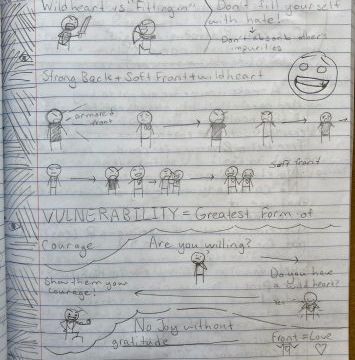 Wildheart vs "Fitting in"
Don't fill yourself
with hate!
Don't absorb other's
impurities
Strong Back + Soft Front + wildheart
armored
front
Soft front
VULNERABILITY = Greatest form of
Courage
Are you willing?
Show them your
courage!
Do you have
a wild heart?
Yes
No Joy without
gratitude
Front = Love